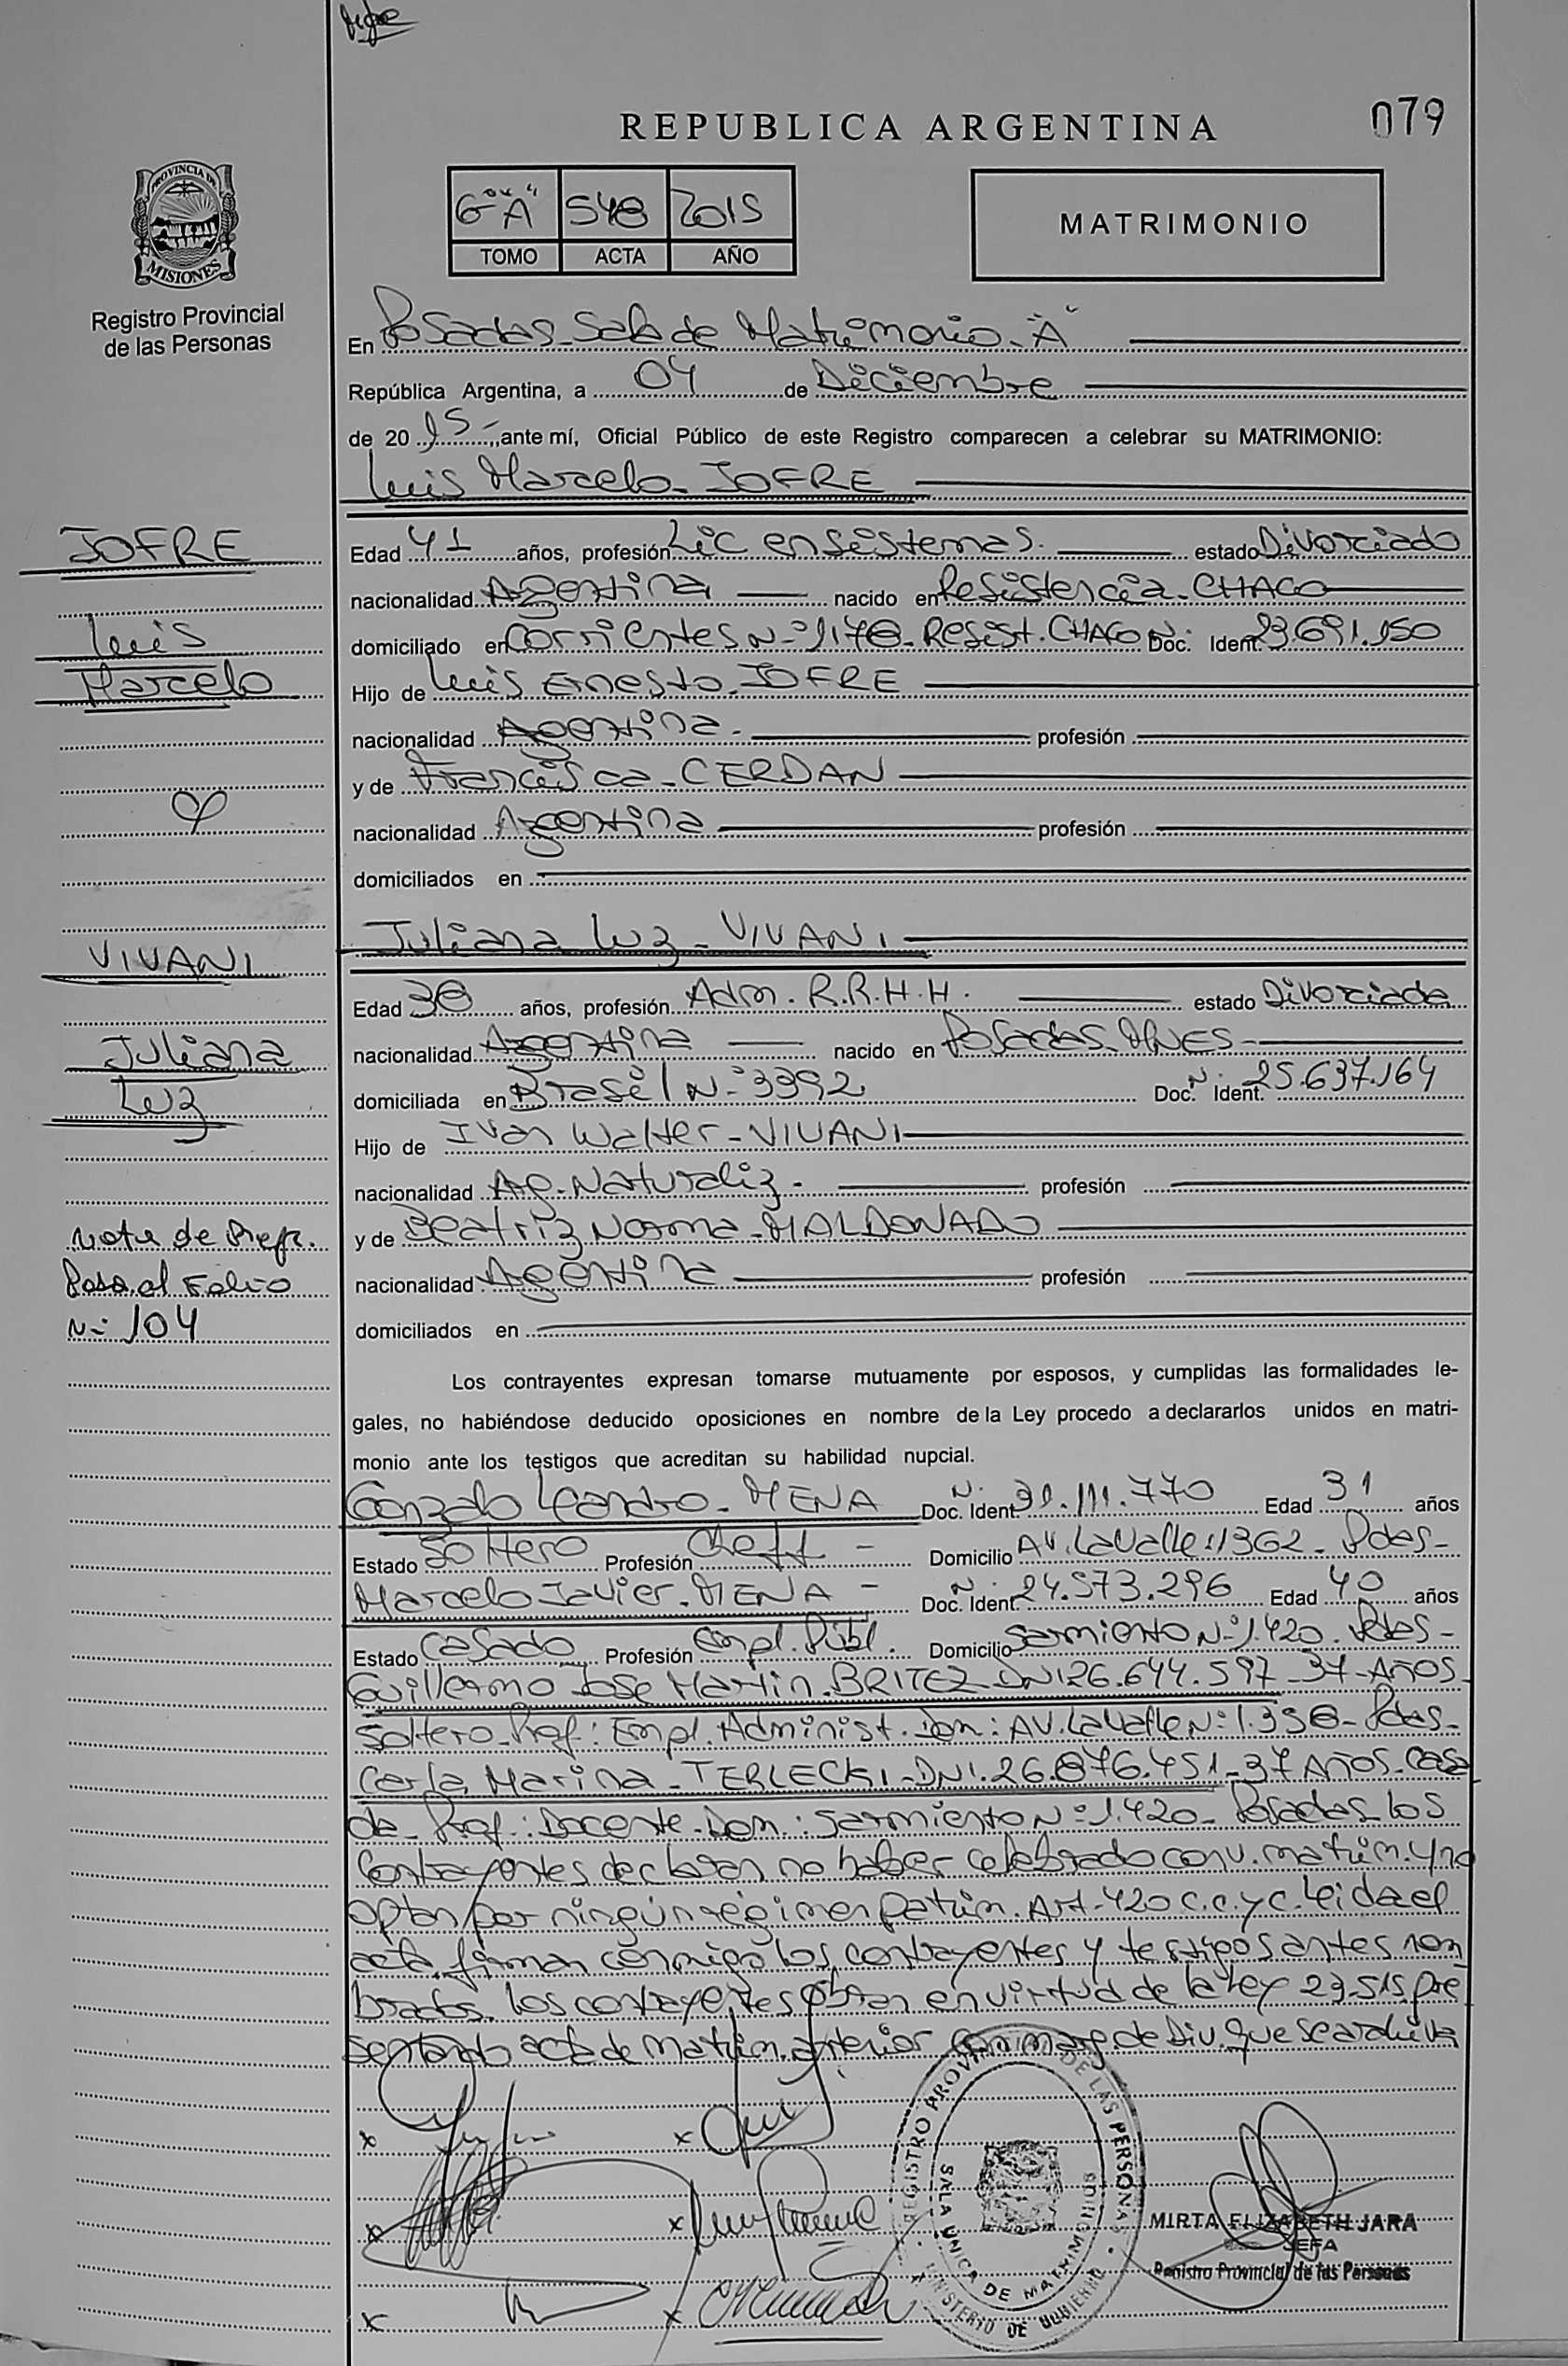 079
REPUBLICA ARGENTINA
6º "A" 548 2015
TOMO ACTA AÑO
MATRIMONIO
PROVINCIA DE
MISIONES
Registro Provincial
de las Personas
En Posadas Sala de Matrimonio "A"
República Argentina, a 04 de Diciembre
de 20 15 ,,ante mí, Oficial Público de este Registro comparecen a celebrar su MATRIMONIO:
Luis Marcelo JOFRE
JOFRE
Luis
Marcelo
Edad 41 años, profesión Lic en Sistemas. estado Divorciado
nacionalidad Argentina nacido en Resistencia CHACO
domiciliado en Corrientes Nº 1.178 - Resist. CHACO Doc. Ident. Nº 23.691.150
Hijo de Luis Ernesto JOFRE
nacionalidad Argentina profesión
y de Francisca CERDAN
nacionalidad Argentina profesión
domiciliados en
Juliana Luz VIVANI
VIVANI
Juliana
Luz
Edad 38 años, profesión Adm. R.R.H.H. estado Divorciada
nacionalidad Argentina nacido en Posadas MNES
domiciliada en Brasil Nº 3392 Doc. Ident. Nº 25.637.164
Hijo de Ivan Walter VIVANI
nacionalidad Ag. Naturaliz. profesión
y de Beatriz Norma MALDONADO
nacionalidad Argentina profesión
domiciliados en
Nota de Refr.
Pasa al Folio
Nº 104
Los contrayentes expresan tomarse mutuamente por esposos, y cumplidas las formalidades le-
gales, no habiéndose deducido oposiciones en nombre de la Ley procedo a declararlos unidos en matri-
monio ante los testigos que acreditan su habilidad nupcial.
Gonzalo Leandro MENA Doc. Ident. Nº 31.111.770 Edad 31 años
Estado Soltero Profesión Cheff Domicilio AV. Lavalle 1362 - Pdas-
Marcelo Javier MENA Doc. Ident. Nº 24.573.296 Edad 40 años
Estado Casado Profesión Empl. Públ. Domicilio Sarmiento Nº 1.420. Pdas-
Guillermo Jose Martin BRITEZ DNI 26.644.597 - 37 Años
Soltero Prof: Empl. Administ. Dom: AV. Lavalle Nº 1.358 - Pdas-
Carla Marina TERLECKI DNI. 26.876.451 - 37 Años - Casa
da - Prof: Docente - Dom: Sarmiento Nº 1.420 - Posadas - los
Contrayentes declaran no haber celebrado conv. matrim. y no
optan por ningún régimen patrim. Art. 420 C.C. y C. Leida el
acta, firman conmigo los contrayentes y testigos antes nom
brados. los contrayentes obran en virtud de la ley 23.515 pre
sentando acta de matrim. anterior con marg. de Div. que se archiva
REGISTRO PROVINCIAL DE LAS PERSONAS
SALA UNICA DE MATRIMONIOS
MINISTERIO DE GOBIERNO
MIRTA ELIZABETH JARA
JEFA
Registro Provincial de las Personas